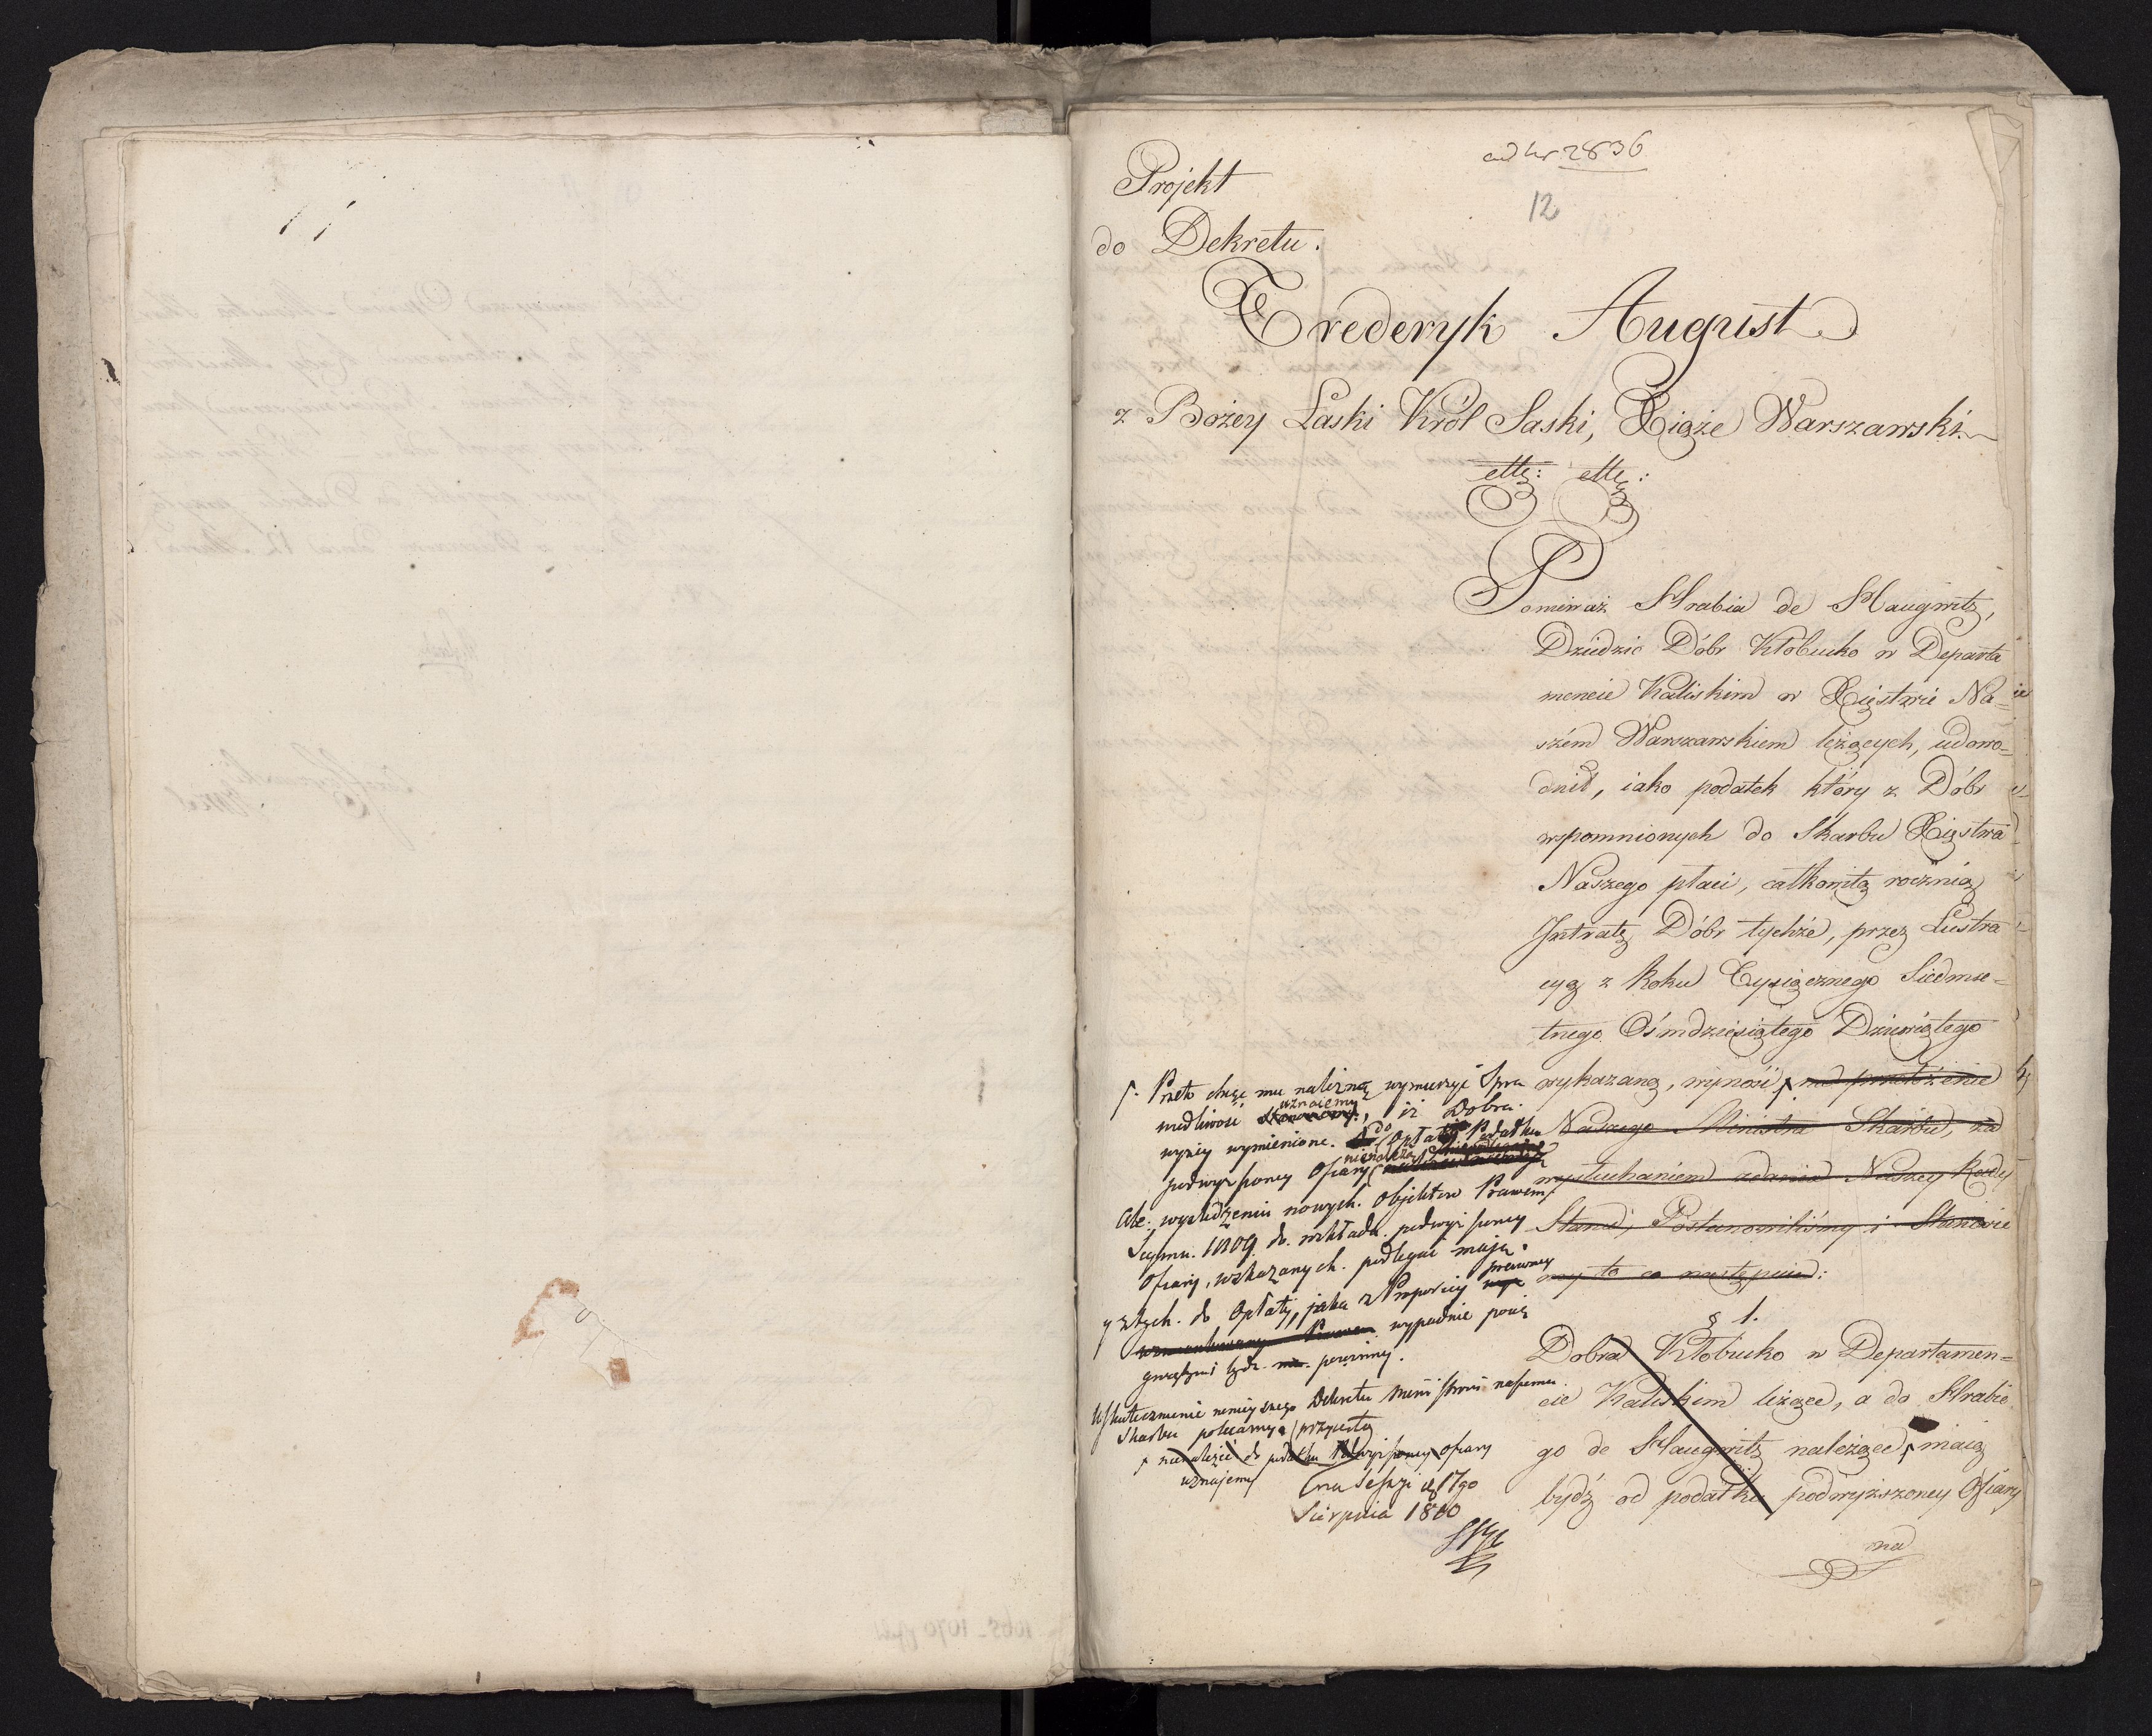 ad Nr 2836
12
Projekt
do Dekretu.
Frederyk August
z Bożey Łaski Król Saski, Xiąże Warszawski
ettc: ettc:
Poniważ Hrabia de Haugwitz,
Dziedzic Dóbr Kłobucko w Departa
mencie Kaliskim w Xięstwie Na=
szém Warszawskiem leżących, udowo=
dnił, iako podatek który z Dóbr
wspomnionych do Skarbu Xięstwa
Naszego płaci, całkowitą roczną
Intratę Dóbr tychże, przez Lustra
cyą z Roku Tysiącznego Siedmse=
tnego Ośmdziesiątego Dziewiątego
wykazaną, wynosi, na przełożenie
Naszego Ministra Skarbu, za
wysłuchaniem zdania Naszey Rady
Stanu, Postanowiliśmy i Stanowie
my to co następuie:
§ 1.
Dobra Kłobucko w Departamen=
cie Kaliskim leżące, a do Hrabie
go de Haugwitz należące, maią
bydź od podatku podwyższoney Ofiary
na
Przeto chcąc mu należną wymierzyć Spra
wiedliwość uznaiemy, iż Dobra
wyżey wymienione do Opłaty Podatku
podwyższoney Ofiary nienależą
Ale wyśledzeniu nowych Objektow Prawem
Seymu 1809 do wkładu podwyższoney
Ofiary, wskazanych podlegać maią
y z tych do Opłaty, jaka z Proporcij prawney
wypadnie pocią
gniętymi bydź powinny.
Uskutecznienie ninieyszego Dekretu Ministrowi naszemu
Skarbu polecamy (przyięty
należeć do podatku Podwyższoney ofiary
uznajemy
na Sessji d 17go
Sierpnia 1810